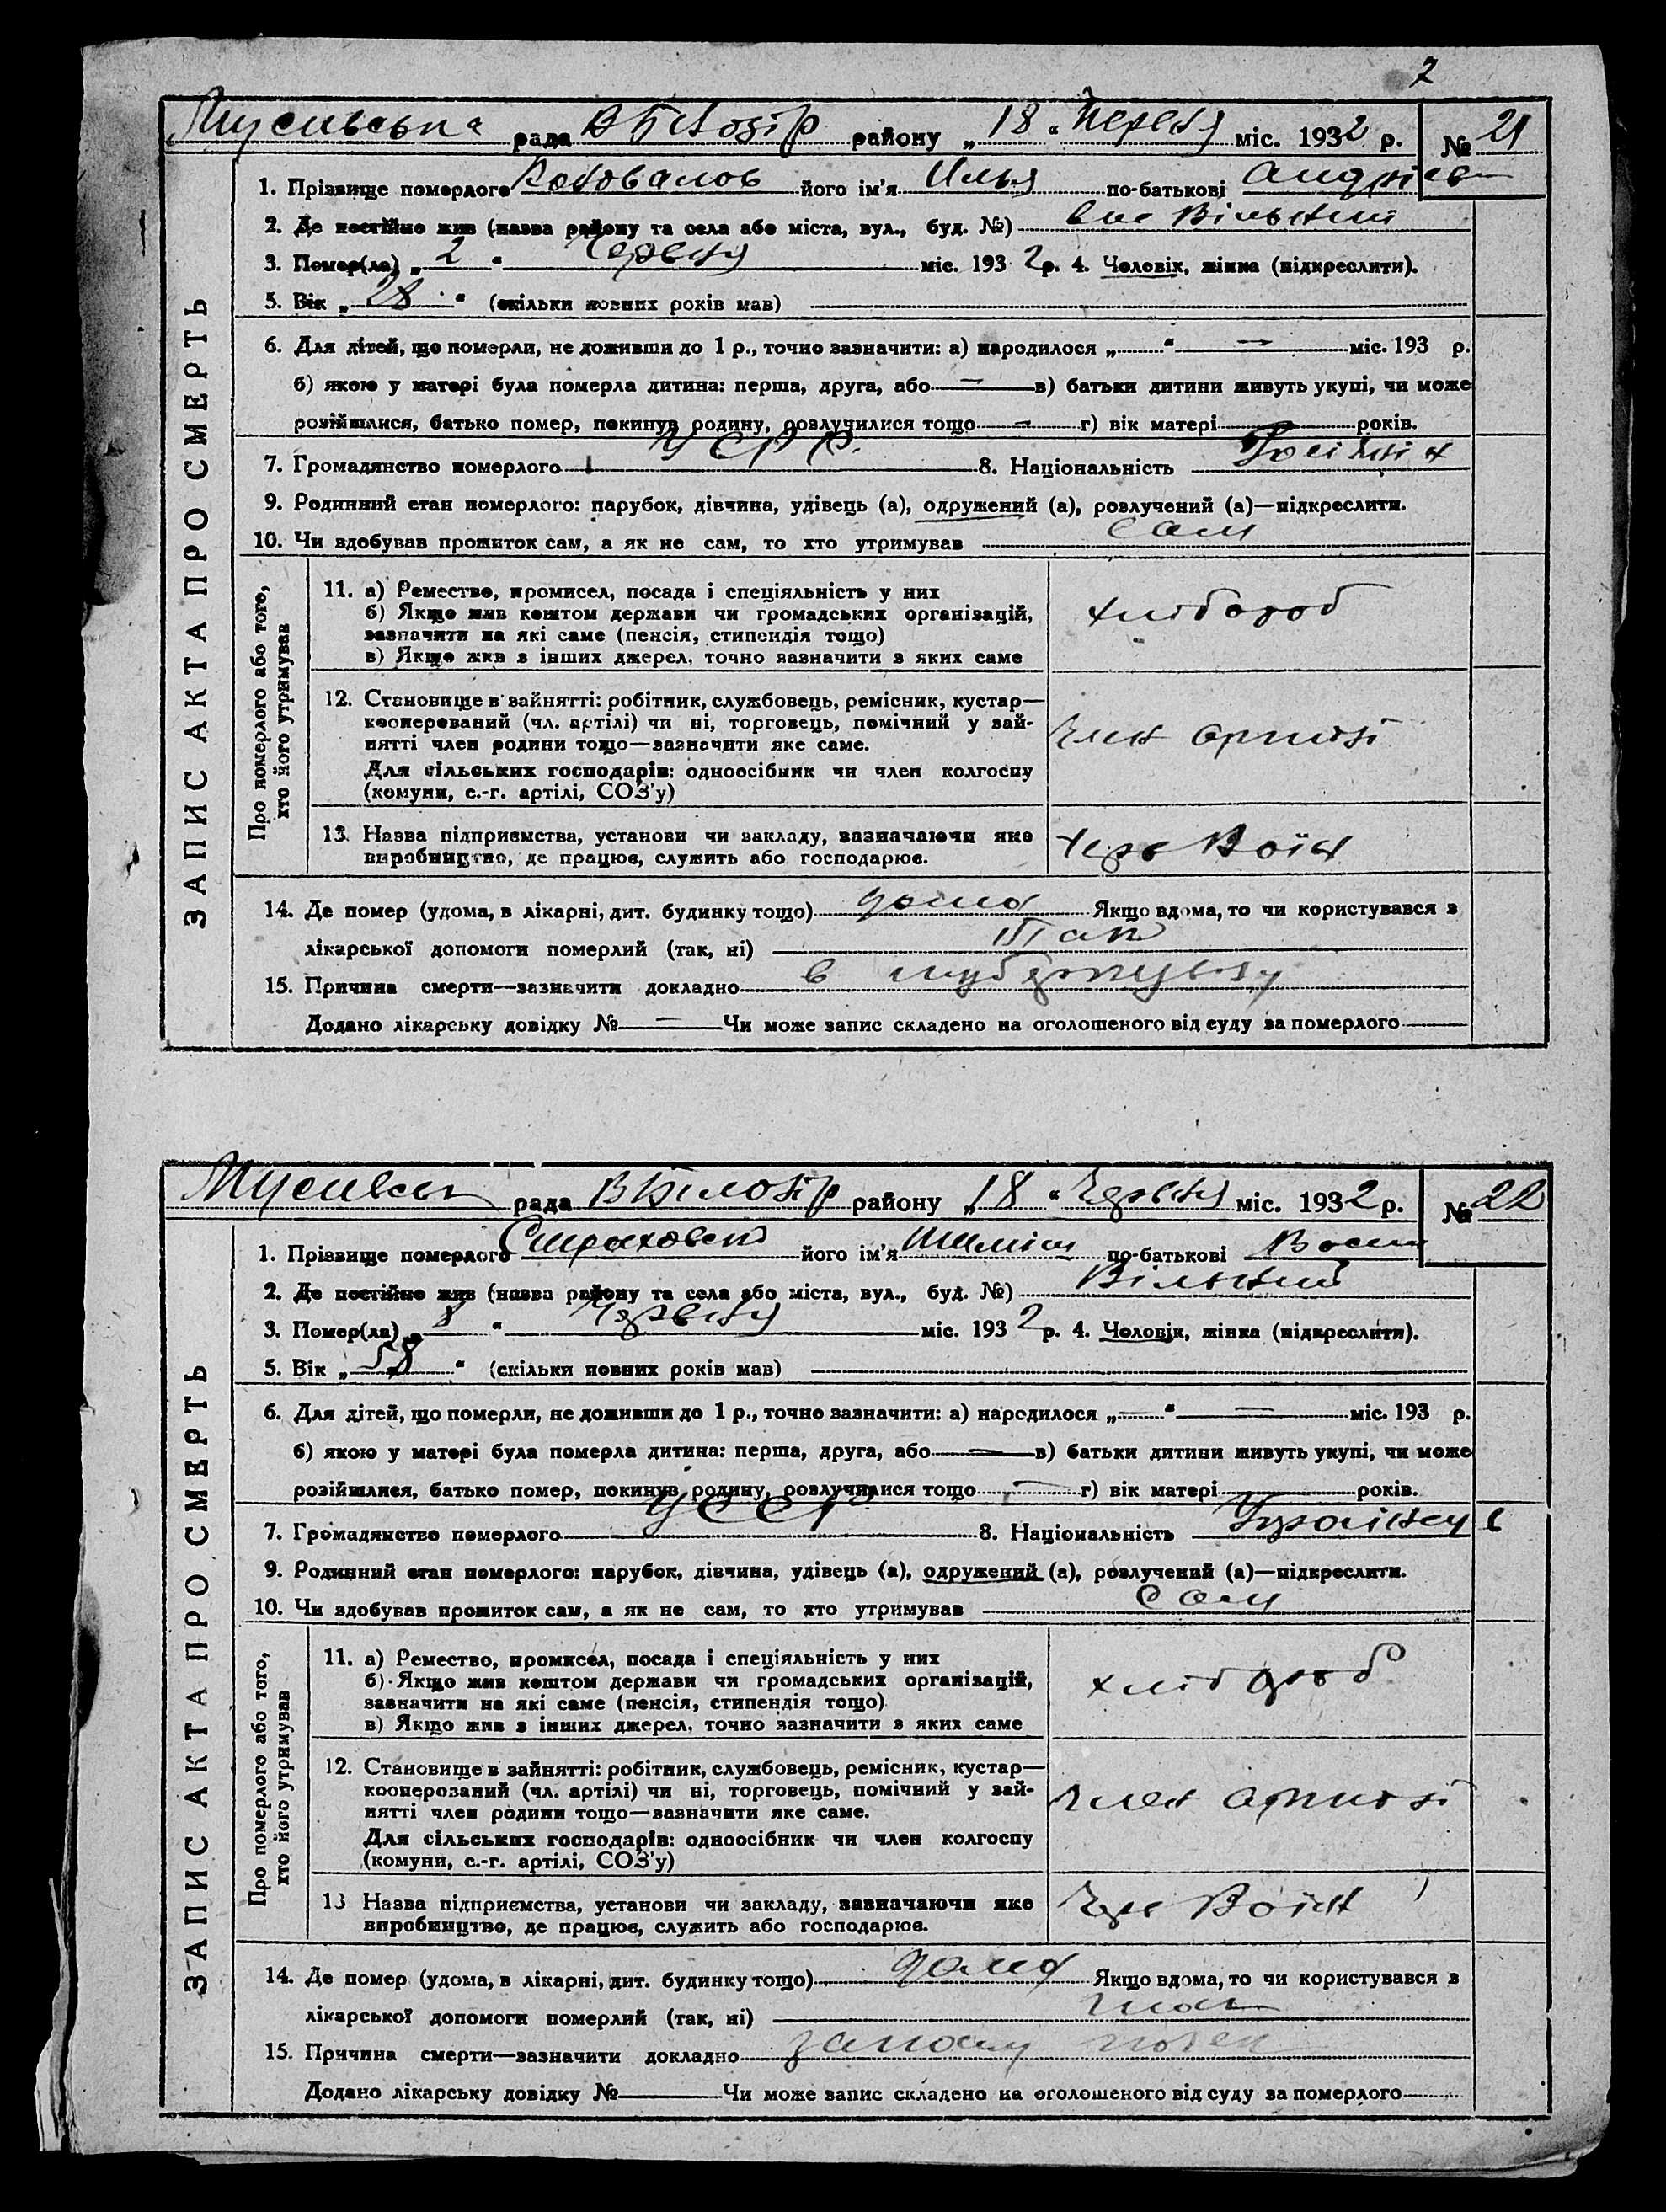 7
рада В Білозір району „ 18 “ Червня міс. 1932 р. № 21
1. Прізвище померлого Коновалов його ім’я Илья по-батькові Андрієв
2. Де постійно жив (назва району та села або міста, вул., буд. №) Вільний
3. Помер(ла) „ 2 “ Червня міс. 1932 р. 4. Чоловік, жінка (підкреслити).
5. Вік „ 28 “ (скільки повних років мав)
6. Для дітей, що померли, не доживши до 1 р., точно зазначити: а) народилося „ “ — міс. 193 р.
б) якою у матері була померла дитина: перша, друга, або — в) батьки дитини живуть укупі, чи може
розійшлися, батько помер, покинув родину, розлучилися тощо — г) вік матері років.
7. Громадянство померлого УСРР. 8. Національність
9. Родинний стан померлого: парубок, дівчина, удівець (а), одружений (а), розлучений (а)—підкреслити.
10. Чи здобував прожиток сам, а як не сам, то хто утримував сам
ЗАПИС АКТА ПРО СМЕРТЬ
Про померлого або того,
хто його утримував
11. а) Ремество, промисел, посада і спеціяльність у них
б) Якщо жив коштом держави чи громадських організацій,
зазначити на які саме (пенсія, стипендія тощо)
в) Якщо жив з інших джерел, точно зазначити з яких саме
хлібороб
12. Становище в зайнятті: робітник, службовець, ремісник, кустар—
кооперований (чл. артілі) чи ні, торговець, помічний у зай-
нятті член родини тощо—зазначити яке саме.
Для сільських господарів: одноосібник чи член колгоспу
(комуни, с.-г. артілі, СОЗ’у)
Член артілі
13. Назва підприємства, установи чи закладу, вазначаючи яке
виробництво, де працює, служить або господарює.
14. Де помер (удома, в лікарні, дит. будинку тощо) дома Якщо вдома, то чи користувався з
лікарської допомоги померлий (так, ні) Так
15. Причина смерти—зазначити докладно в туберкульозу
Додано лікарську довідку № — Чи може запис складено на оголошеного від суду за померлого
рада В Білозір району „ 18 “ Червня міс. 1932 р. № 22
1. Прізвище померлого Страховский його ім’я по-батькові Васил
2. Де постійно жив (назва району та села або міста, вул., буд. №) Вільний
3. Помер(ла) „ 8 “ Червня міс. 1932 р. 4. Чоловік, жінка (підкреслити).
5. Вік „ 58 “ (скільки повних років мав)
6. Для дітей, що померли, не доживши до 1 р., точно зазначити: а) народилося „ — “ — міс. 193 р.
б) якою у матері була померла дитина: перша, друга, або — в) батьки дитини живуть укупі, чи може
розійшлися, батько помер, покинув родину, розлучилися тощо — г) вік матері років.
7. Громадянство померлого УССР 8. Національність
9. Родинний стан померлого: парубок, дівчина, удівець (а), одружений (а), розлучений (а)—підкреслити.
10. Чи здобував прожиток сам, а як не сам, то хто утримував сам
ЗАПИС АКТА ПРО СМЕРТЬ
Про померлого або того,
хто його утримував
11. а) Ремество, промисел, посада і спеціяльність у них
б) Якщо жив коштом держави чи громадських організацій,
зазначити на які саме (пенсія, стипендія тощо)
в) Якщо жив з інших джерел, точно зазначити з яких саме
хлібороб
12. Становище в зайнятті: робітник, службовець, ремісник, кустар—
кооперований (чл. артілі) чи ні, торговець, помічний у зай-
нятті член родини тощо—зазначити яке саме.
Для сільських господарів: одноосібник чи член колгоспу
(комуни, с.-г. артілі, СОЗ’у)
Член артілі
13 Назва підприємства, установи чи закладу, вазначаючи яке
виробництво, де працює, служить або господарює.
14. Де помер (удома, в лікарні, дит. будинку тощо) дома Якщо вдома, то чи користувався з
лікарської допомоги померлий (так, ні)
15. Причина смерти—зазначити докладно
Додано лікарську довідку № Чи може запис складено на оголошеного від суду за померлого